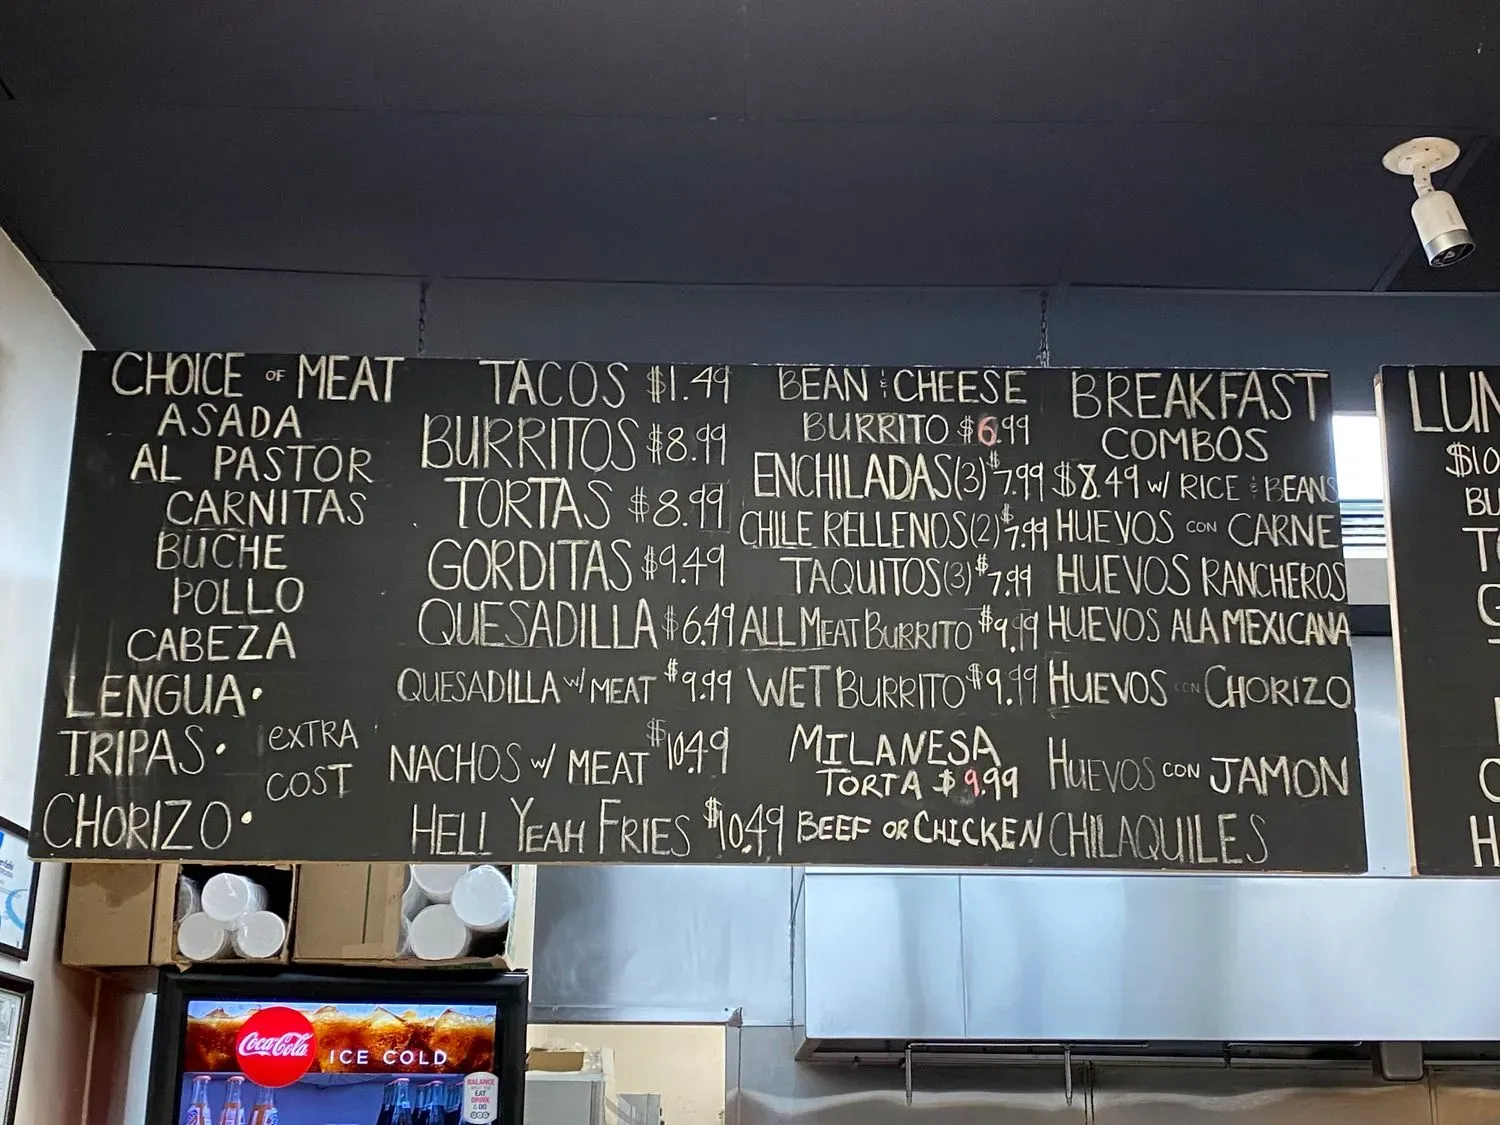 CHOICE OF MEAT
ASADA
AL PASTOR
CARNITAS
BUCHE
POLLO
CABEZA
LENGUA•
TRIPAS•
CHORIZO•
EXTRA
COST
TACOS $1.49
BURRITOS $8.99
TORTAS $8.99
GORDITAS $9.49
QUESADILLA $6.49
QUESADILLA w/ MEAT $9.99
NACHOS w/ MEAT $10.49
HELL YEAH FRIES $10.49
BEAN & CHEESE
BURRITO $6.99
ENCHILADAS (3) $7.99
CHILE RELLENOS (2) $7.99
TAQUITOS (3) $7.99
ALL MEAT BURRITO $9.99
WET BURRITO $9.99
MILANESA
TORTA $9.99
BEEF OR CHICKEN
BREAKFAST
COMBOS
$8.49 w/ RICE & BEANS
HUEVOS CON CARNE
HUEVOS RANCHEROS
HUEVOS ALA MEXICANA
HUEVOS CON CHORIZO
HUEVOS CON JAMON
CHILAQUILES
LUN
$10
BU
Coca-Cola
ICE COLD
BALANCE
EAT
DRINK
& DO